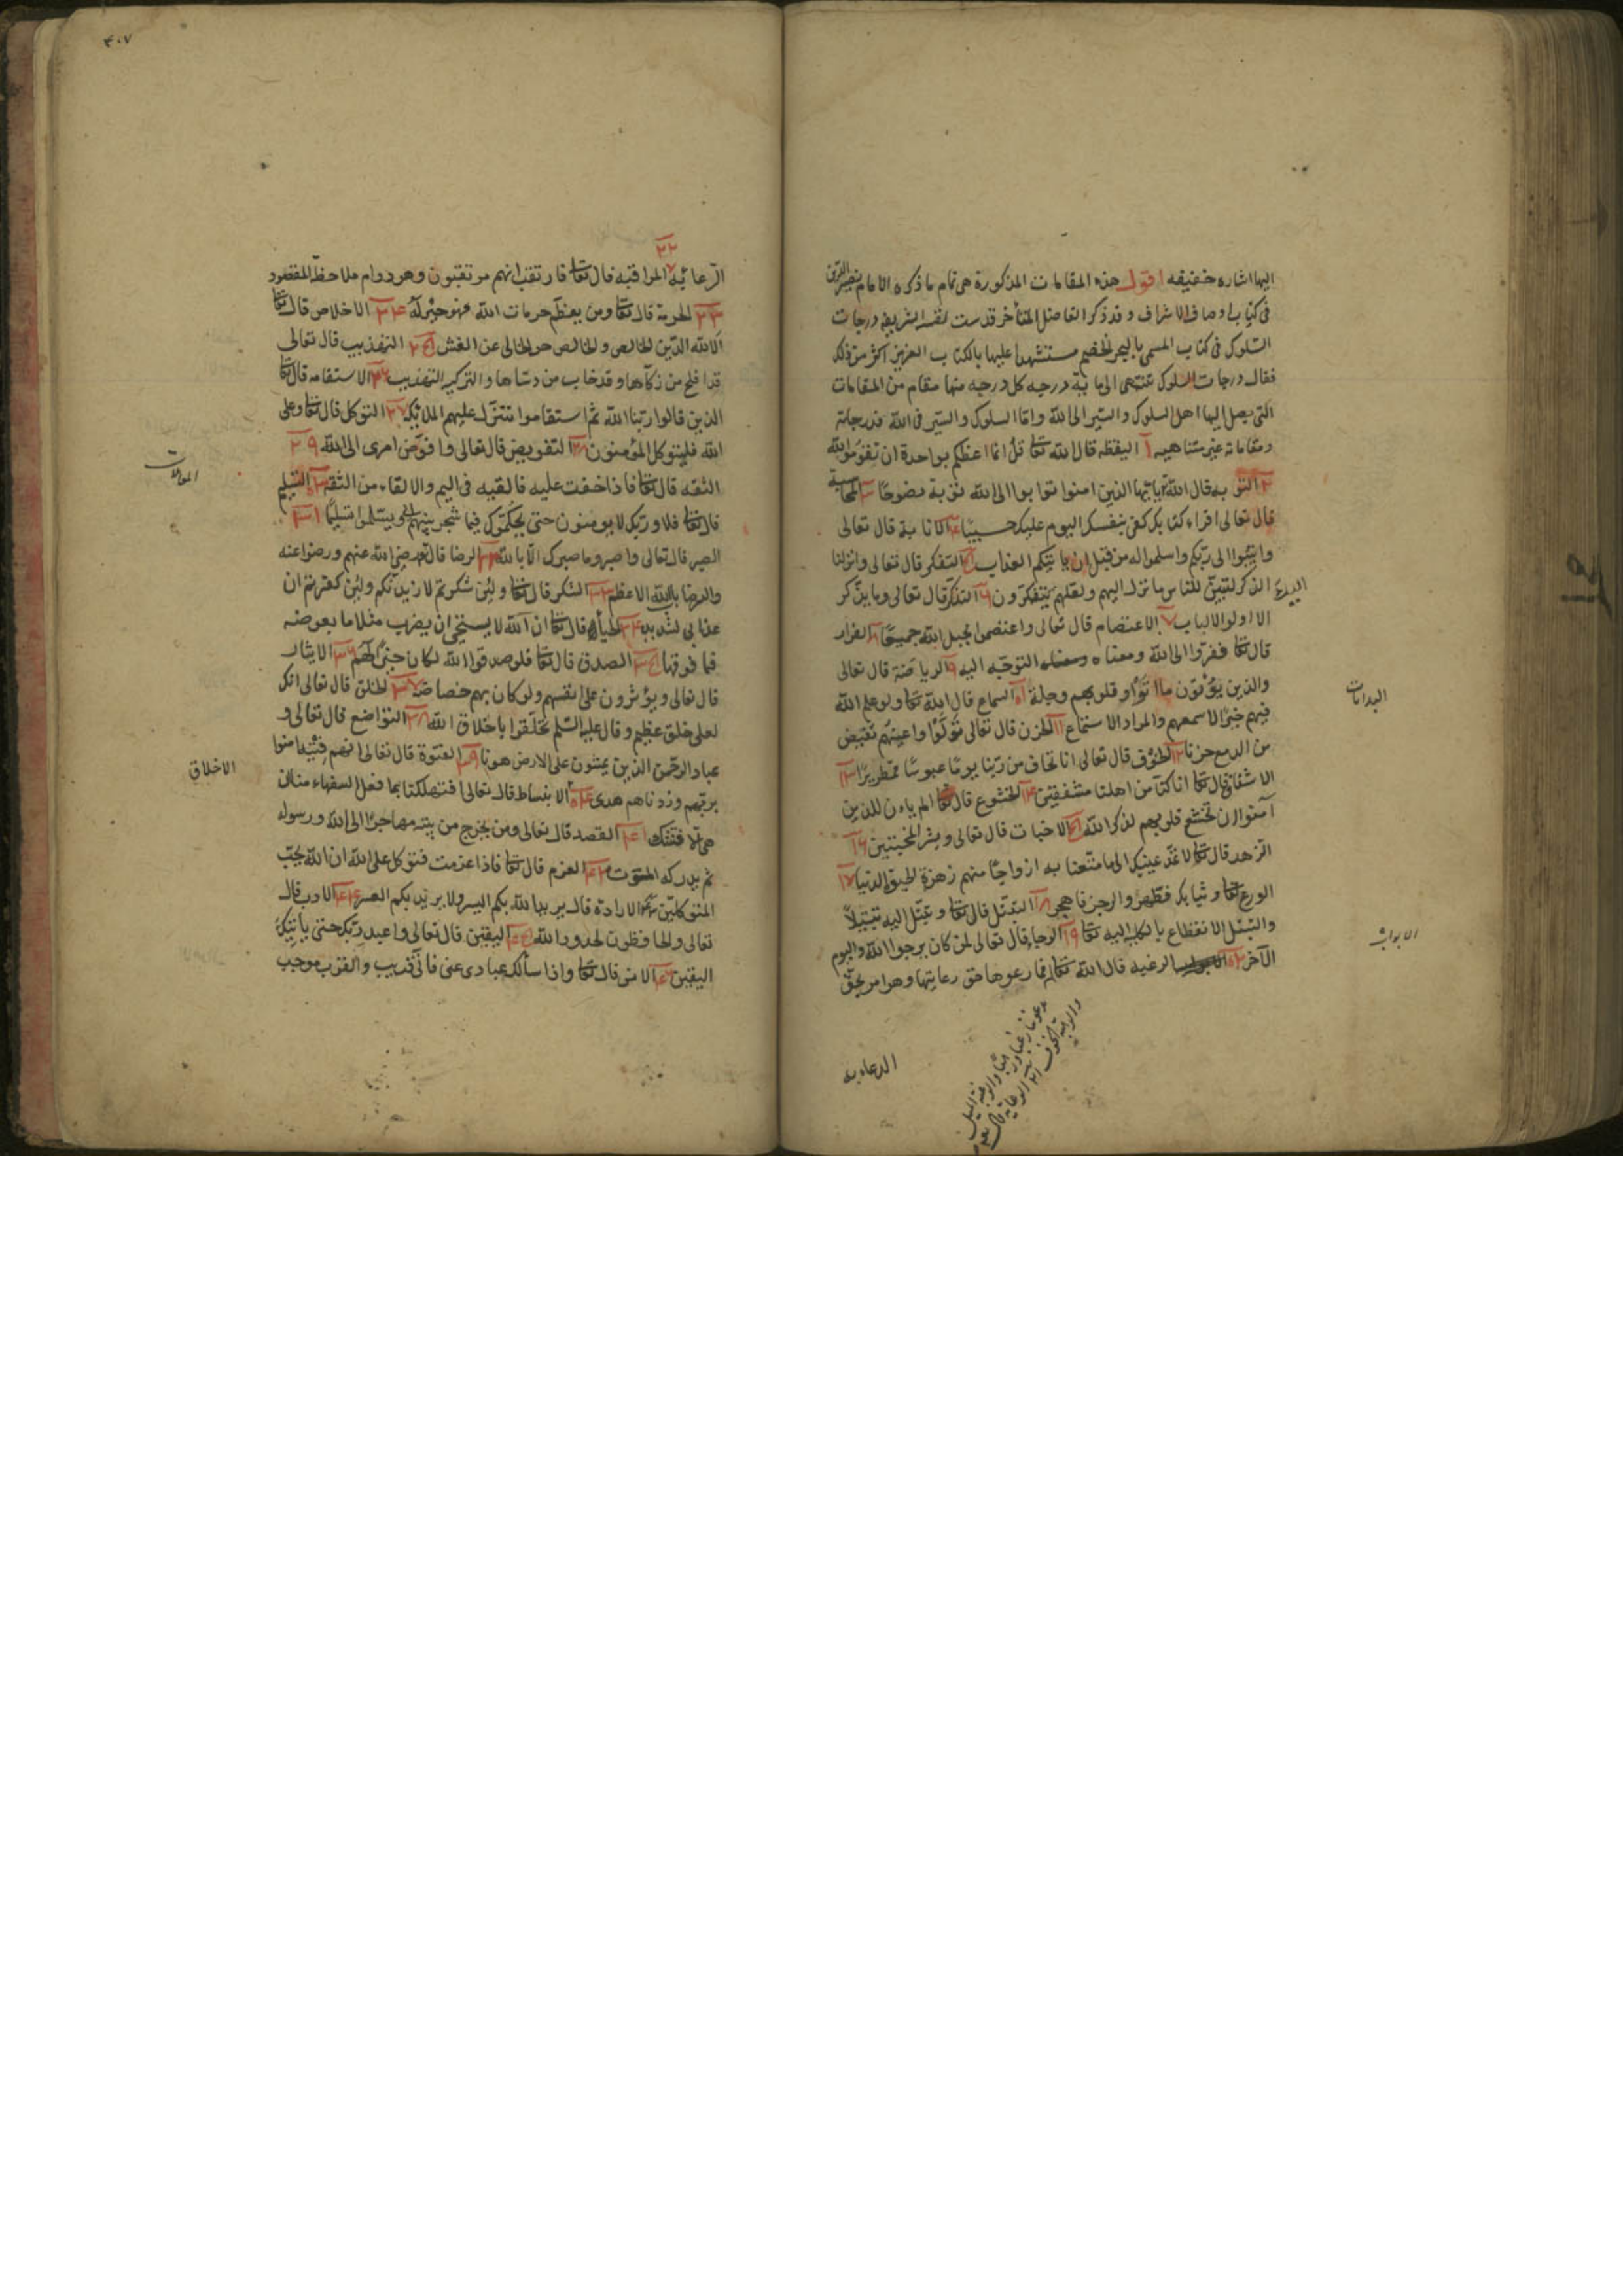 اليها اشاره حقيقه اقول هذه المقامات المذكورة هى تمام ما ذكره الامام نصير الدين
فى كتاب اوصاف الاشراف وقد ذكر الفاضل المتأخر قدست نفسه الشريفه درجات
السلوك فى كتاب المسمى بالبحر الخضم مستشهدا عليها بالكتاب العزيز اكثر من ذلك
فقال درجات السلوك تنتهى الى ماية درجه كل درجه منها مقام من المقامات
التى يصل اليها اهل السلوك والسير الى الله واما السلوك والسير فى الله فدرجاته
ومقاماته غير متناهيه ١ اليقظه قال الله تعا قل انما اعظكم بواحدة ان تقوموا لله
٢ التوبه قال الله يا ايها الذين امنوا توبوا الى الله توبة نصوحا ٣ المحاسبة
قال تعالى اقراء كتابك كفى بنفسك اليوم عليك حسيبا ٤ الانابة قال تعالى
وانيبوا الى ربكم واسلموا له من قبل ان ياتيكم العذاب ٥ التفكر قال تعالى وانزلنا
اليك الذكر لتبين للناس ما نزل اليهم ولعلهم يتفكرون ٦ التذكر قال تعالى وما يذكر
الا اولو الالباب ٧ الاعتصام قال تعالى واعتصموا بحبل الله جميعا ٨ الفرار
قال تعا ففروا الى الله ومعناه التوجه اليه ٩ الرياضة قال تعالى
والذين يؤتون ما اتوا وقلوبهم وجلة ١٠ السماع قال الله تعا ولو علم الله
فيهم خيرا لاسمعهم والمراد الاستماع ١١ الحزن قال تعالى تولوا واعينهم تفيض
من الدمع حزنا ١٢ الخوف قال تعالى انا نخاف من ربنا يوما عبوسا قمطريرا ١٣
الاشفاق قال تعا انا كنا من اهلنا مشفقين ١٤ الخشوع قال تعا الم يان للذين
آمنوا ان تخشع قلوبهم لذكر الله ١٥ الاخبات قال تعالى وبشر المخبتين ١٦
الزهد قال تعا لا تمدن عينيك الى ما متعنا به ازواجا منهم زهرة الحيوة الدنيا ١٧
الورع تعا وثيابك فطهر والرجز فاهجر ١٨ التبتل قال تعا وتبتل اليه تبتيلا
والتبتل الانقطاع بالكليه اليه تعا ١٩ الرجاء قال تعالى لمن كان يرجوا الله واليوم
الآخر ٢٠ الرغبه قال الله تعا فما رعوها حق رعايتها وهو امر بحق
يدعوننا رغبا ورهبا والرغبة الميل
والرهبة الخوف ٢١ الرعاية قال تعا
الرعايه
البدايات
الابواب
٤٠٧
٢٢
الرعاية المراقبه قال تعا فارتقب انهم مرتقبون وهو دوام ملاحظة المقصود
٢٣ الحرمة قال تعا ومن يعظم حرمات الله فهو خير له ٢٤ الاخلاص قال تعا
الا لله الدين الخالص والخالص هو الخالى عن الغش ٢٥ التهذيب قال تعالى
قد افلح من زكاها وقد خاب من دساها والتزكيه التهذيب ٢٦ الاستقامه قال تعا
الذين قالوا ربنا الله ثم استقاموا تتنزل عليهم الملائكة ٢٧ التوكل قال تعا وعلى
الله فليتوكل المؤمنون ٢٨ التفويض قال تعالى وافوض امرى الى الله ٢٩
الثقه قال تعا فاذا خفت عليه فالقيه فى اليم والالقاء من الثقه ٣٠ التسليم
قال تعا فلا وربك لا يومنون حتى يحكموك فيما شجر بينهم ويسلموا تسليما ٣١
الصبر قال تعالى واصبر وما صبرك الا بالله ٣٢ الرضا قال تعا رضى الله عنهم ورضوا عنه
والرضا باب الله الاعظم ٣٣ الشكر قال تعا ولئن شكرتم لازيدنكم ولئن كفرتم ان
عذابى لشديد ٣٤ الحياء قال تعا ان الله لا يستحيى ان يضرب مثلا ما بعوضه
فما فوقها ٣٥ الصدق قال تعا فلو صدقوا الله لكان خيرا لهم ٣٦ الايثار
قال تعالى ويؤثرون على انفسهم ولو كان بهم خصاصة ٣٧ الخلق قال تعالى انك
لعلى خلق عظيم وقال عليه السلم تخلقوا باخلاق الله ٣٨ التواضع قال تعالى و
عباد الرحمن الذين يمشون على الارض هونا ٣٩ الفتوة قال تعالى انهم فتية امنوا
بربهم وزدناهم هدى ٤٠ الانبساط قال تعالى افتهلكنا بما فعل السفهاء منا ان
هى الا فتنتك ٤١ القصد قال تعالى ومن يخرج من بيته مهاجرا الى الله ورسوله
ثم يدركه الموت ٤٢ العزم قال تعا فاذا عزمت فتوكل على الله ان الله يحب
المتوكلين ٤٣ الارادة قال يريد الله بكم اليسر ولا يريد بكم العسر ٤٤ الادب قال
تعالى والحافظون لحدود الله ٤٥ اليقين قال تعالى واعبد ربك حتى ياتيك
اليقين ٤٦ الانس قال تعا واذا سألك عبادى عنى فانى قريب والقرب موجب
المعاملات
الاخلاق